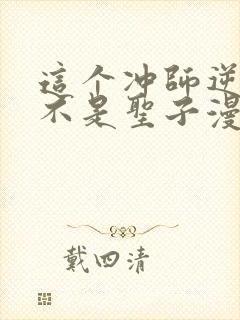 這个冲師逆
不是聖子漫
戴四清